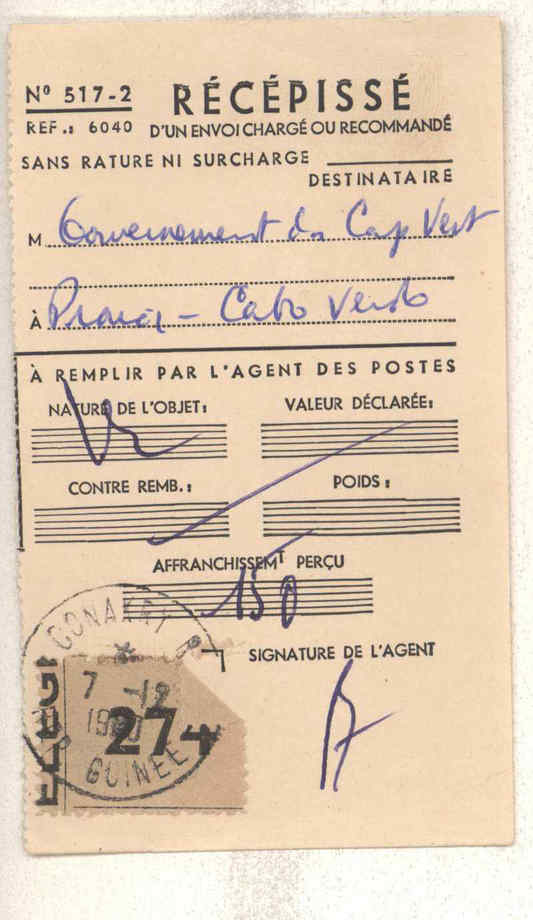 Nº 517-2
RÉCÉPISSÉ
REF.: 6040
D'UN ENVOI CHARGÉ OU RECOMMANDÉ
SANS RATURE NI SURCHARGE
DESTINATAIRE
M Gouvernement du Cap Vert
À Praia - Cabo Verde
À REMPLIR PAR L'AGENT DES POSTES
NATURE DE L'OBJET:
VALEUR DÉCLARÉE:
CONTRE REMB.:
POIDS:
AFFRANCHISSEMT PERÇU
150
SIGNATURE DE L'AGENT
CONAKRY
7 -12
274
GUINEE